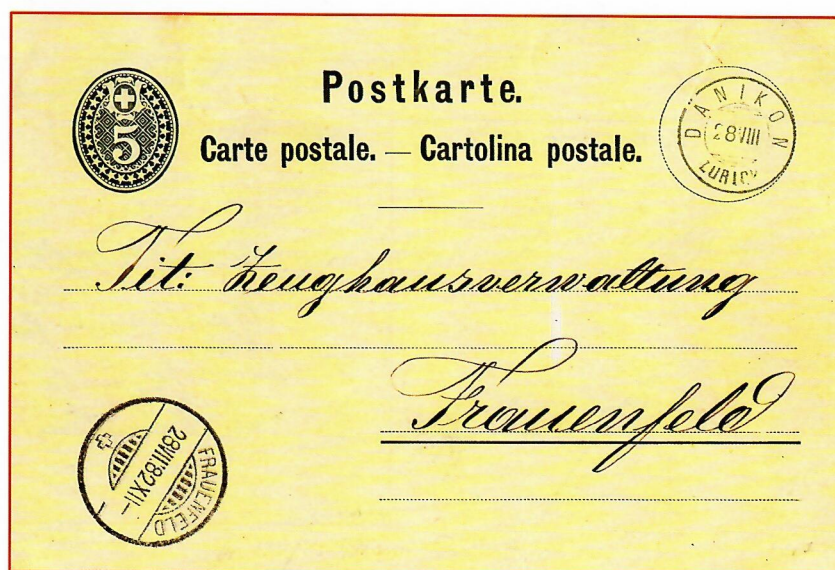 5
Postkarte.
Carte postale. — Cartolina postale.
DÄNIKON
28 VIII
ZÜRICH
Tit: Zeughausverwaltung
Frauenfeld
FRAUENFELD
28.VIII.82.XII–